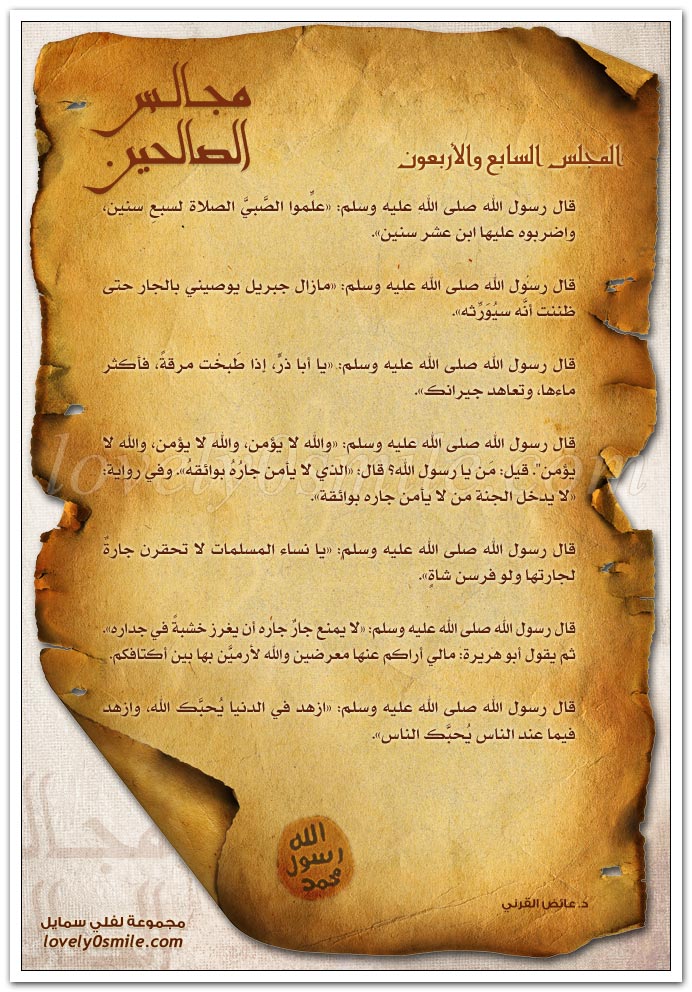 مجالس
الصالحين
المجلس السابع والأربعون
قال رسول الله صلى الله عليه وسلم: «علِّموا الصَّبيَّ الصلاة لسبعِ سنين،
واضربوه عليها ابن عشر سنين».
قال رسول الله صلى الله عليه وسلم: «مازال جبريل يوصيني بالجار حتى
ظننت أنَّه سيُوَرِّثه».
قال رسول الله صلى الله عليه وسلم: «يا أبا ذرٍّ، إذا طَبخْت مرقةً، فأكثر
ماءها، وتعاهد جيرانك».
قال رسول الله صلى الله عليه وسلم: «والله لا يَؤمن، والله لا يؤمن، والله لا
يؤمن". قيل: من يا رسول الله؟ قال: «الذي لا يأمن جارُهُ بوائقهُ». وفي رواية:
«لا يدخل الجنة من لا يأمن جاره بوائقة».
قال رسول الله صلى الله عليه وسلم: «يا نساء المسلمات لا تحقرن جارةٌ
لجارتها ولو فرسن شاةٍ».
قال رسول الله صلى الله عليه وسلم: «لا يمنع جارٌ جارُه أن يغرز خشبةً في جداره».
ثم يقول أبو هريرة: مالي أراكم عنها معرضين والله لأرميَّن بها بين أكتافكم.
قال رسول الله صلى الله عليه وسلم: «ازهد في الدنيا يُحبَّك الله، وازهد
فيما عند الناس يُحبَّك الناس».
الله
رسول
محمد
د.عائض القرني
مجموعة لفلي سمايل
lovely0smile.com
lovely0smile.com